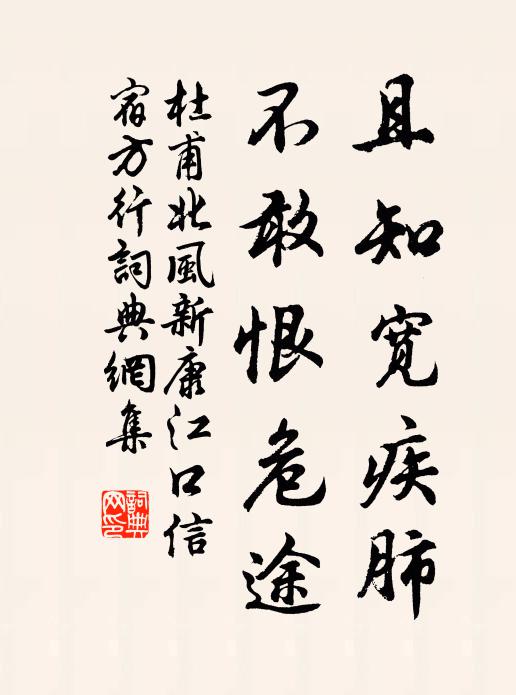 且知宽疾肺
不敢恨危途
杜甫北風新康江口信
宿方行詞典網集
詞典网印